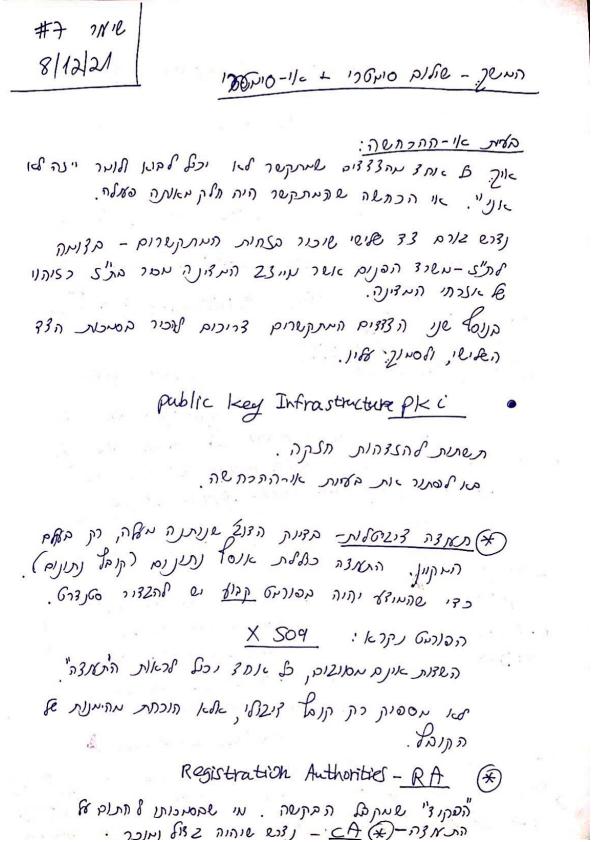 שיעור #7
8/12/21
המשך - שילוב סימטרי + אי-סימטרי
בעיית אי-ההכחשה:
איך כל אחד מהצדדים שמתקשר לא יכול לבוא ולומר "זה לא
אני". אי הכחשה שהמתקשר היה חלק מאותה פעולה.
נדרש גורם צד שלישי שיכיר בזהות המתקשרים - בדומה
לת"ז - משרד הפנים אשר מייצג המדינה מכיר בת"ז כזיהוי
של אזרחי המדינה.
בנוסף שני הצדדים המתקשרים צריכים להכיר בסמכות הצד
השלישי, ולסמוך עליו.
• public key Infrastructure PKi
תשתית להזדהות חזקה.
בא לפתור את בעיית אי-ההכחשה.
* תעודה דיגיטלית - בדיוק הדוג' שנתנה מעלה, רק בעולם
המקוון. התעודה כוללת אוסף נתונים (קובץ נתונים).
כדי שהמידע יהיה בפורמט קבוע יש להגדיר סטנדרט.
הפורמט נקרא: X 509
השדות אינם מסובכים, כל אחד יכול לראות ה"תעודה".
לא מספיק רק קובץ דיגיטלי, אלא הוכחת מהימנות של
הקובץ.
* Registration Authorities - RA
"הפקיד" שמקבל הבקשה. מי שבסמכותו לחתום על
התעודה - * CA - נדרש שיהיה גדול ומוכר.